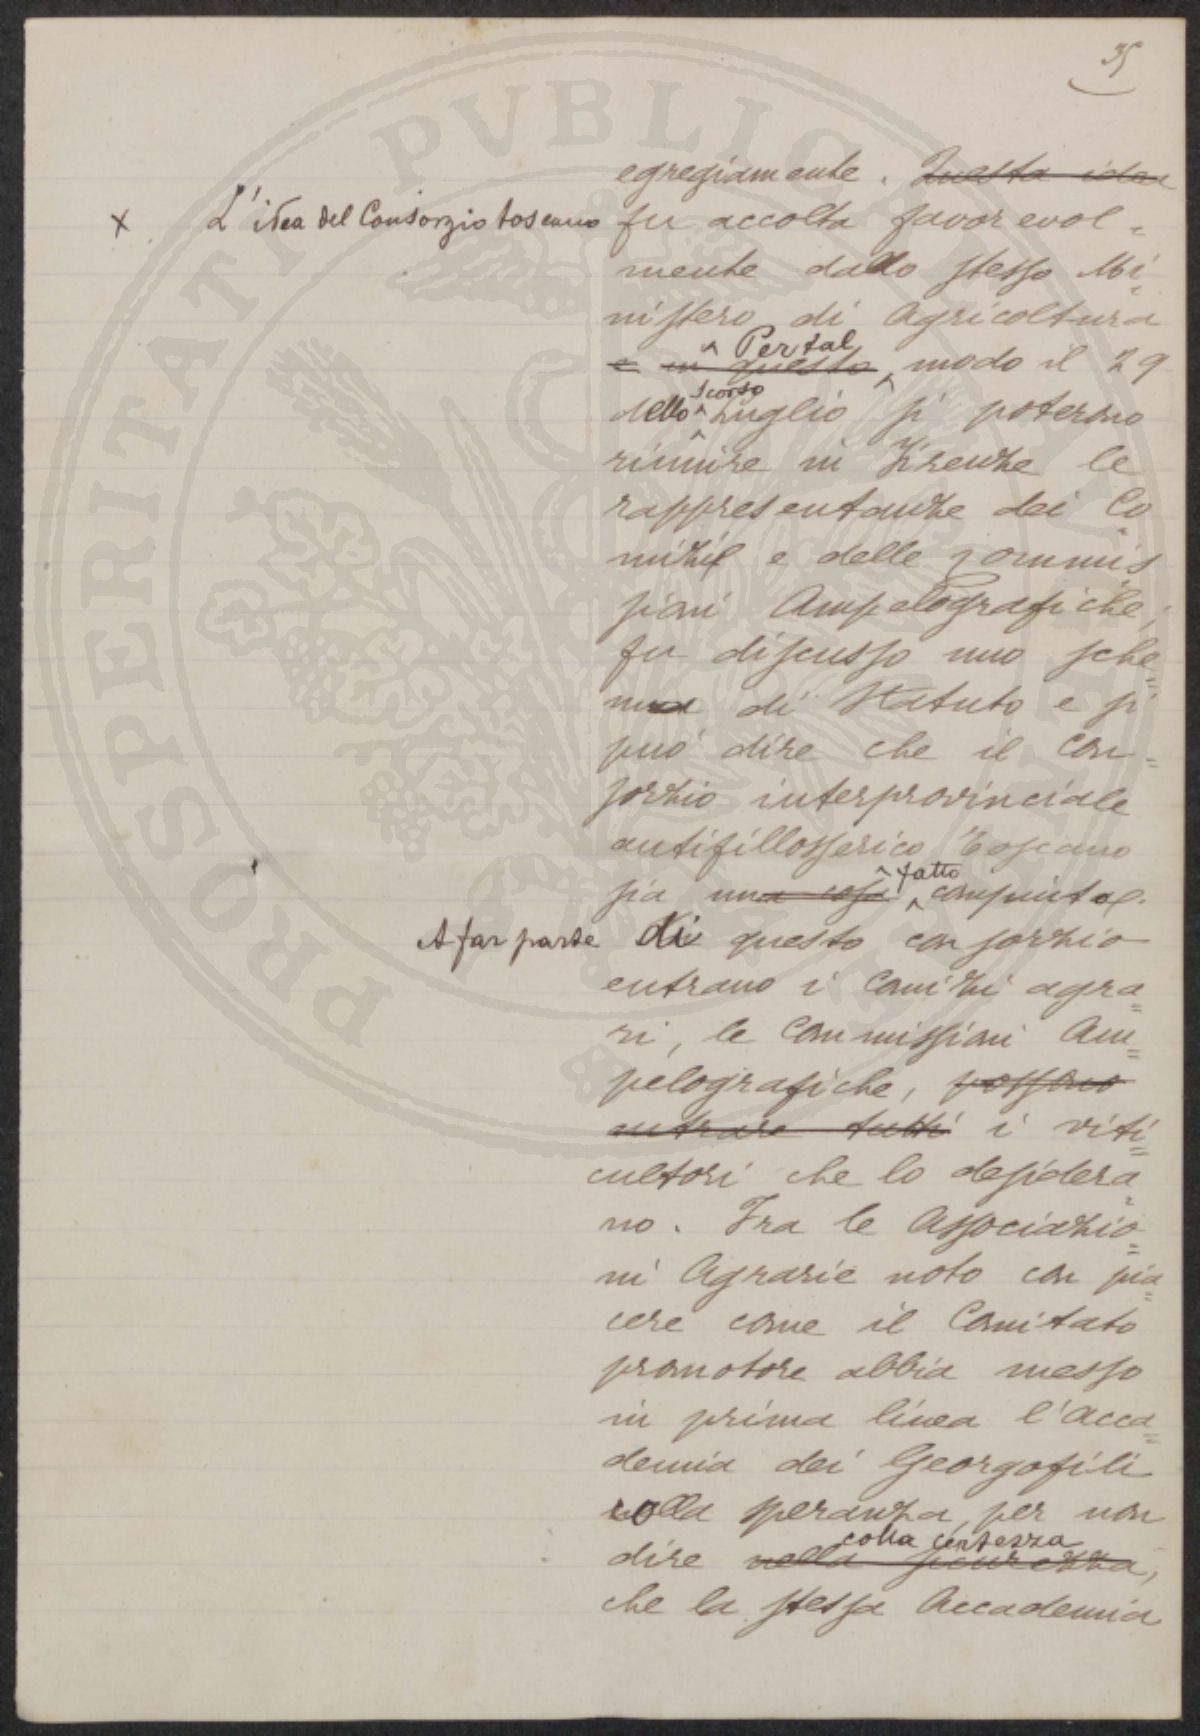 35
egregiamente. Questa idea
X L'idea del Consorzio toscano fu accolta favorevol=
mente dallo stesso Mi=
nistero di Agricoltura
Per tal
e in questo modo il 29
scorso
dello Luglio si poterono
riunire in Firenze le
rappresentanze dei Co
mizi e delle Commis
sioni Ampelografiche,
fu discusso uno sche=
ma di Statuto e si
può dire che il Con=
sorzio interprovinciale
antifillosserico Toscano
fatto
sia una cosa compiuta.
A far parte di questo consorzio
entrano i Comizi agra=
ri, le Commissioni Am=
pelografiche, possono
entrare tutti i viti=
cultori che lo desidera=
no. Fra le Associazio=
ni Agrarie noto con pia=
cere come il Comitato
promotore abbia messo
in prima linea l'Acca=
demia dei Georgofili
colla speranza, per non
colla certezza
dire nella sicurezza,
che la stessa Accademia
PROSPERITATI PUBLICAE AUGENDAE